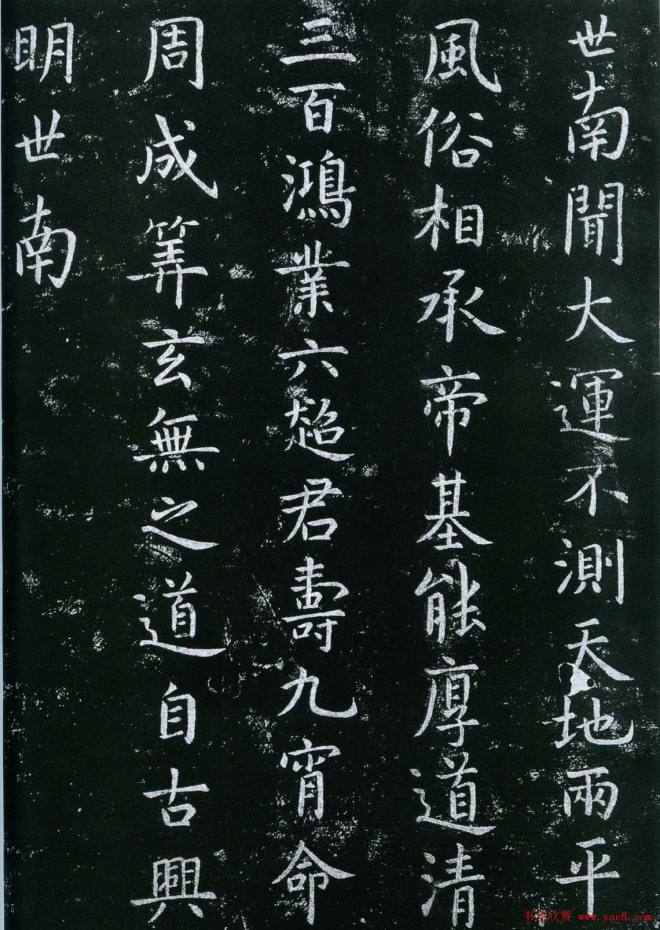 世南聞大運不測天地兩平
風俗相承帝基能厚道清
三百鴻業六超君壽九宵命
周成筭玄無之道自古興
明世南
书法欣赏 www.yac8.com